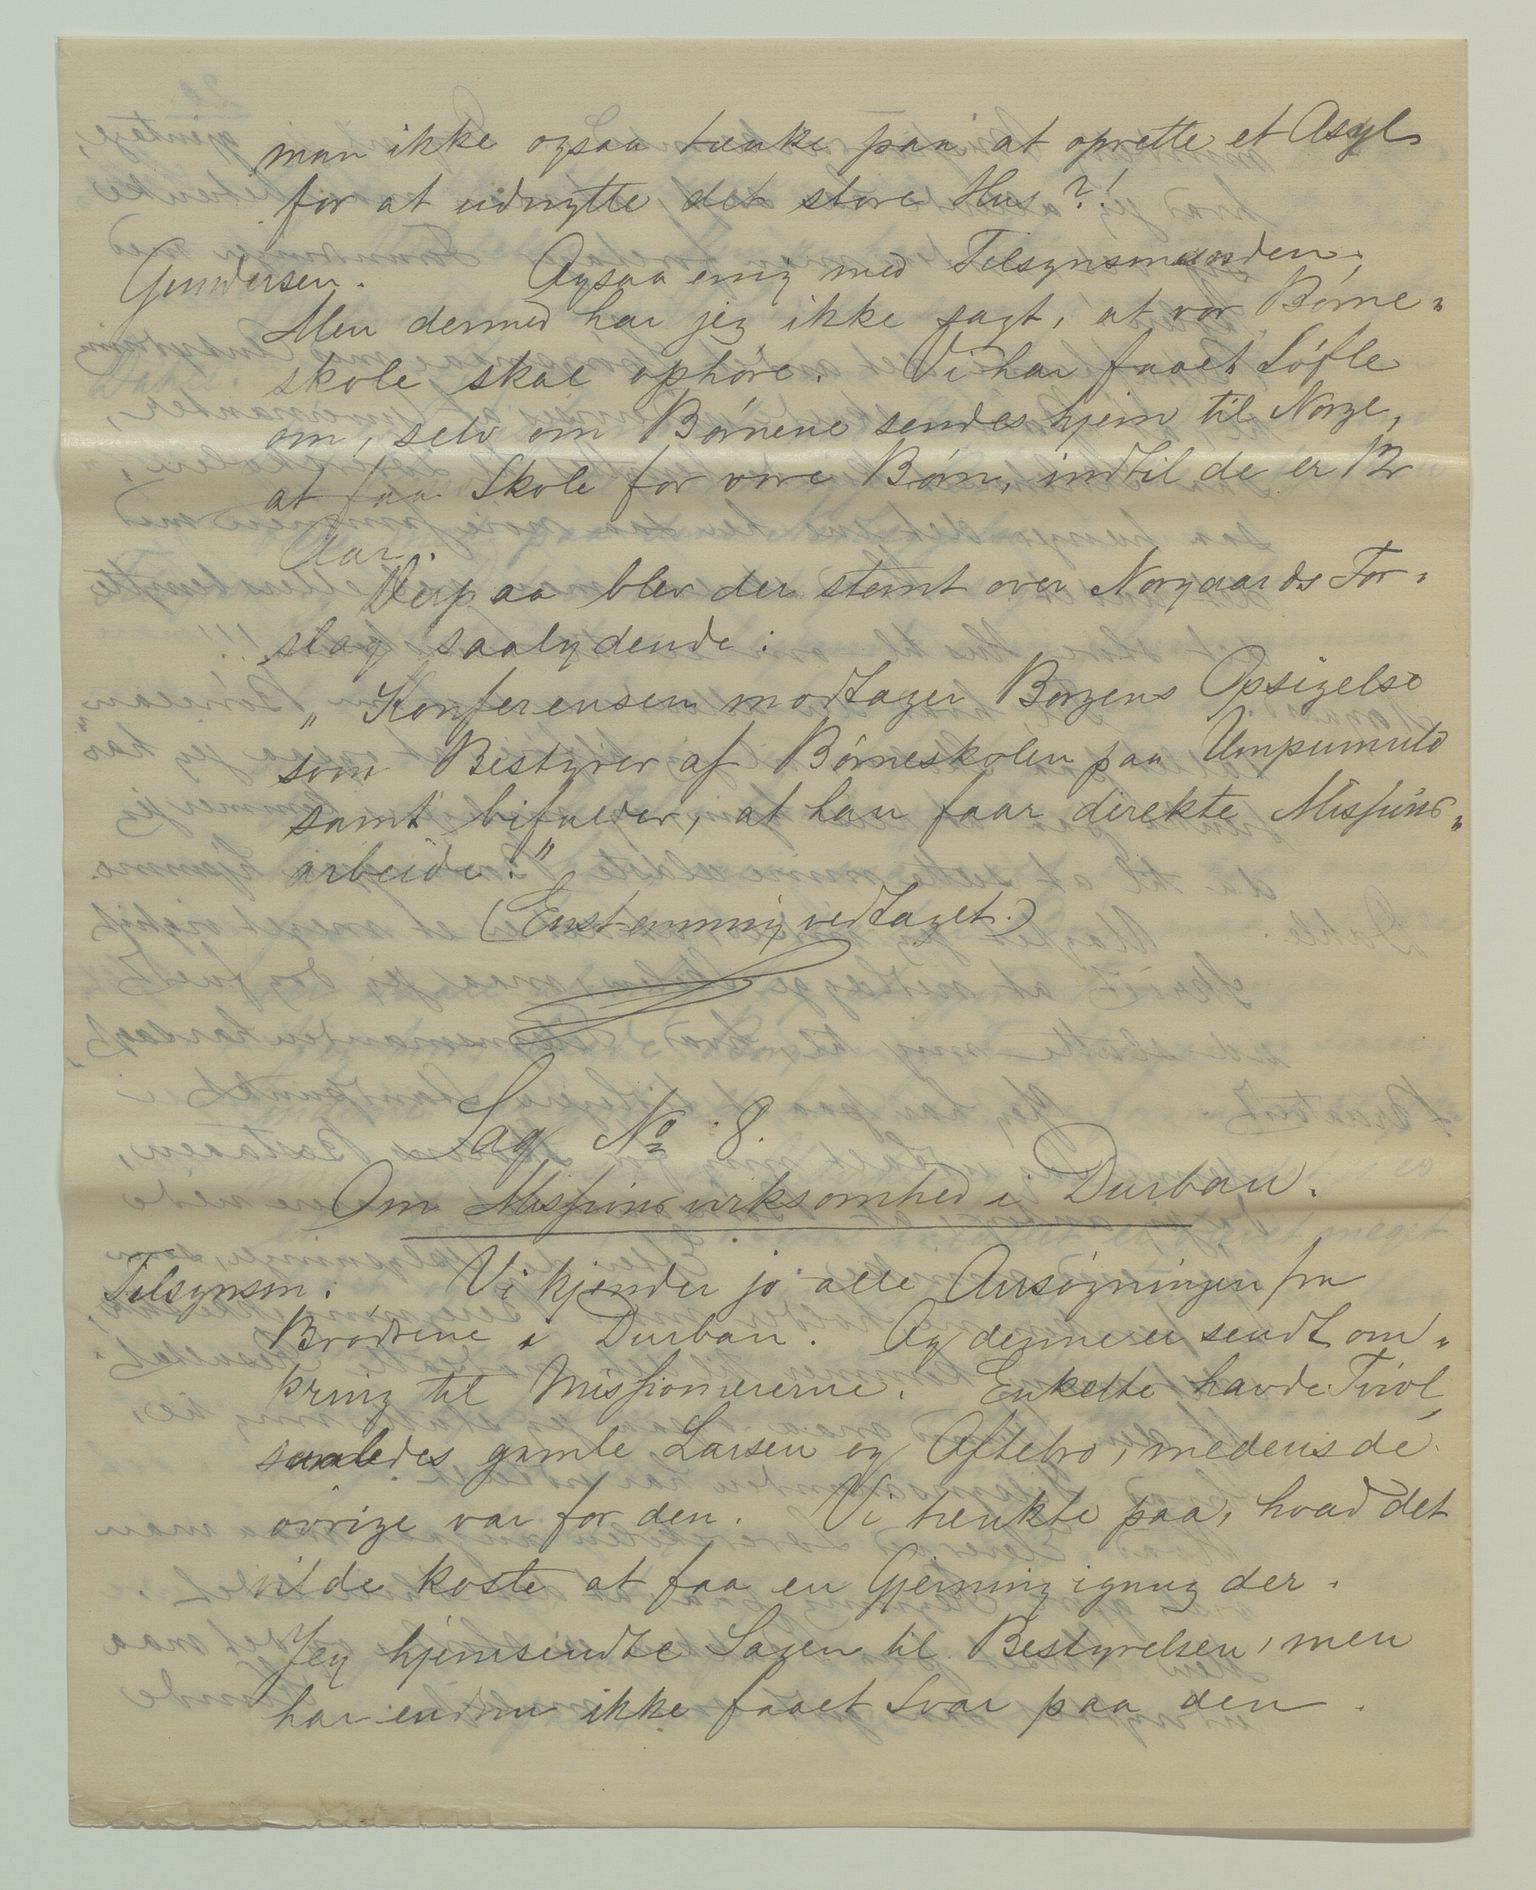 man ikke ogsaa tænke paa at oprette et Asyl
for at udnytte det store Hus?!
Gundersen. Ogsaa enig med Tilsynsmanden.
Men dermed har jeg ikke sagt, at vor Børne-
skole skal ophøre. Vi har faaet Løfte
om, selv om Børnene sendes hjem til Norge,
at faa Skole for vore Børn, indtil de er 12
Aar.
Derpaa blev der stemt over Norgaards For-
slag saalydende:
"Konferensen modtager Borgens Opsigelse
som Bestyrer af Børneskolen paa Umpumulo
samt bifalder, at han faar direkte Missions-
arbeide."
(Enstemmig vedtaget.)
Sag No 8.
Om Missionsvirksomhed i Durban.
Tilsynsm: Vi kjender jo alle Ansøgningen fra
Brødrene i Durban. Og denne er sendt om-
kring til Missionærerne. Enkelte havde Tvivl,
saaledes gamle Larsen og Aftebro, medens de
øvrige var for den. Vi tænkte paa, hvad det
vilde koste at faa en Gjerning igang der.
Jeg hjemsendte Sagen til Bestyrelsen, men
har endnu ikke faaet Svar paa den.